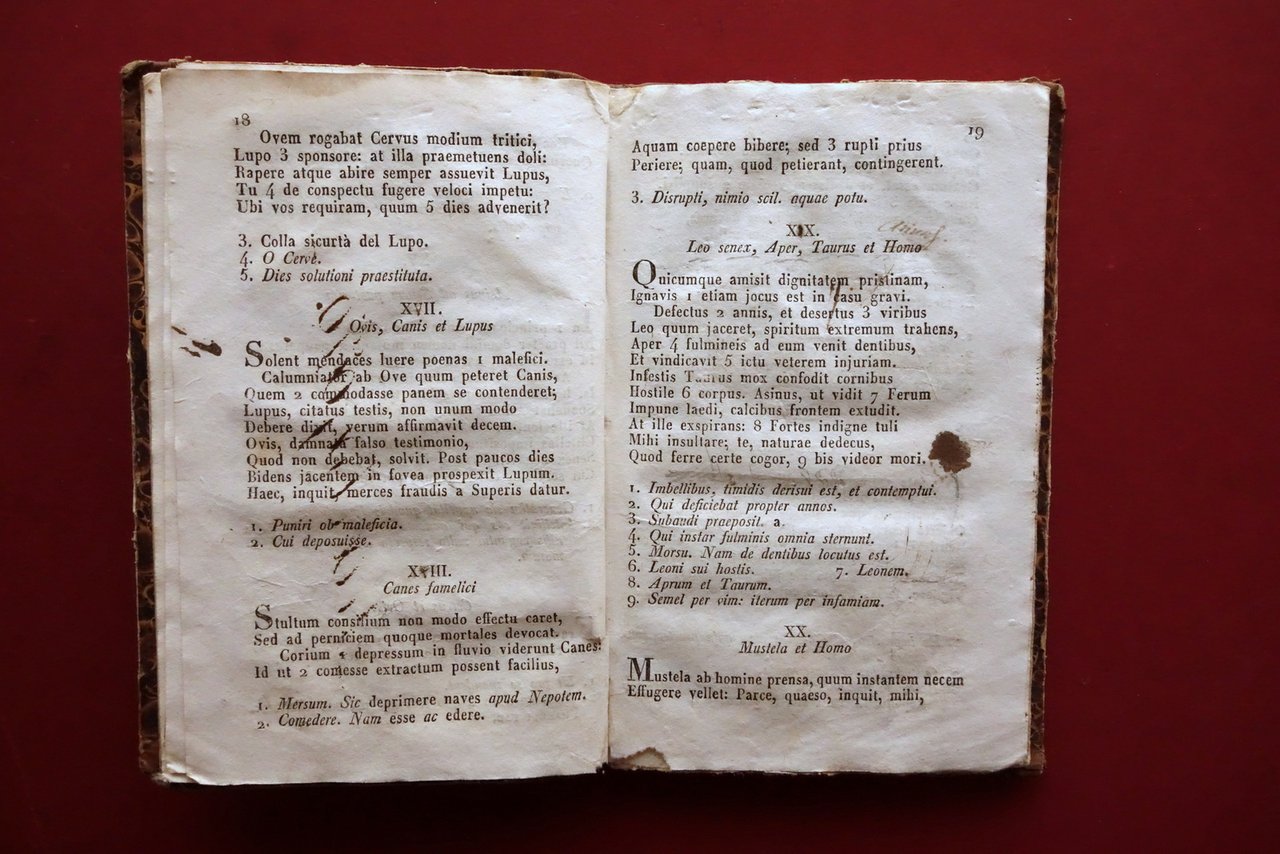 18
Ovem rogabat Cervus modium tritici,
Lupo 3 sponsore: at illa praemetuens doli:
Rapere atque abire semper assuevit Lupus,
Tu 4 de conspectu fugere veloci impetu:
Ubi vos requiram, quum 5 dies advenerit?
3. Colla sicurtà del Lupo.
4. O Cerve.
5. Dies solutioni praestituta.
XVII.
Ovis, Canis et Lupus
Solent mendaces luere poenas 1 malefici.
Calumniator ab Ove quum peteret Canis,
Quem 2 commodasse panem se contenderet;
Lupus, citatus testis, non unum modo
Debere dixit, verum affirmavit decem.
Ovis, damnata falso testimonio,
Quod non debebat, solvit. Post paucos dies
Bidens jacentem in fovea prospexit Lupum.
Haec, inquit, merces fraudis a Superis datur.
1. Puniri ob maleficia.
2. Cui deposuisse.
XVIII.
Canes famelici
Stultum consilium non modo effectu caret,
Sed ad perniciem quoque mortales devocat.
Corium 1 depressum in fluvio viderunt Canes:
Id ut 2 comesse extractum possent facilius,
1. Mersum. Sic deprimere naves apud Nepotem.
2. Comedere. Nam esse ac edere.
19
Aquam coepere bibere; sed 3 rupti prius
Periere; quam, quod petierant, contingerent.
3. Disrupti, nimio scil. aquae potu.
XIX.
Leo senex, Aper, Taurus et Homo
Quicumque amisit dignitatem pristinam,
Ignavis 1 etiam jocus est in casu gravi.
Defectus 2 annis, et desertus 3 viribus
Leo quum jaceret, spiritum extremum trahens,
Aper 4 fulmineis ad eum venit dentibus,
Et vindicavit 5 ictu veterem injuriam.
Infestis Taurus mox confodit cornibus
Hostile 6 corpus. Asinus, ut vidit 7 Ferum
Impune laedi, calcibus frontem extudit.
At ille exspirans: 8 Fortes indigne tuli
Mihi insultare; te, naturae dedecus,
Quod ferre certe cogor, 9 bis videor mori.
1. Imbellibus, timidis derisui est, et contemptui.
2. Qui deficiebat propter annos.
3. Subaudi praeposit. a.
4. Qui instar fulminis omnia sternunt.
5. Morsu. Nam de dentibus locutus est.
6. Leoni sui hostis. 7. Leonem.
8. Aprum et Taurum.
9. Semel per vim: iterum per infamiam.
XX.
Mustela et Homo
Mustela ab homine prensa, quum instantem necem
Effugere vellet: Parce, quaeso, inquit, mihi,